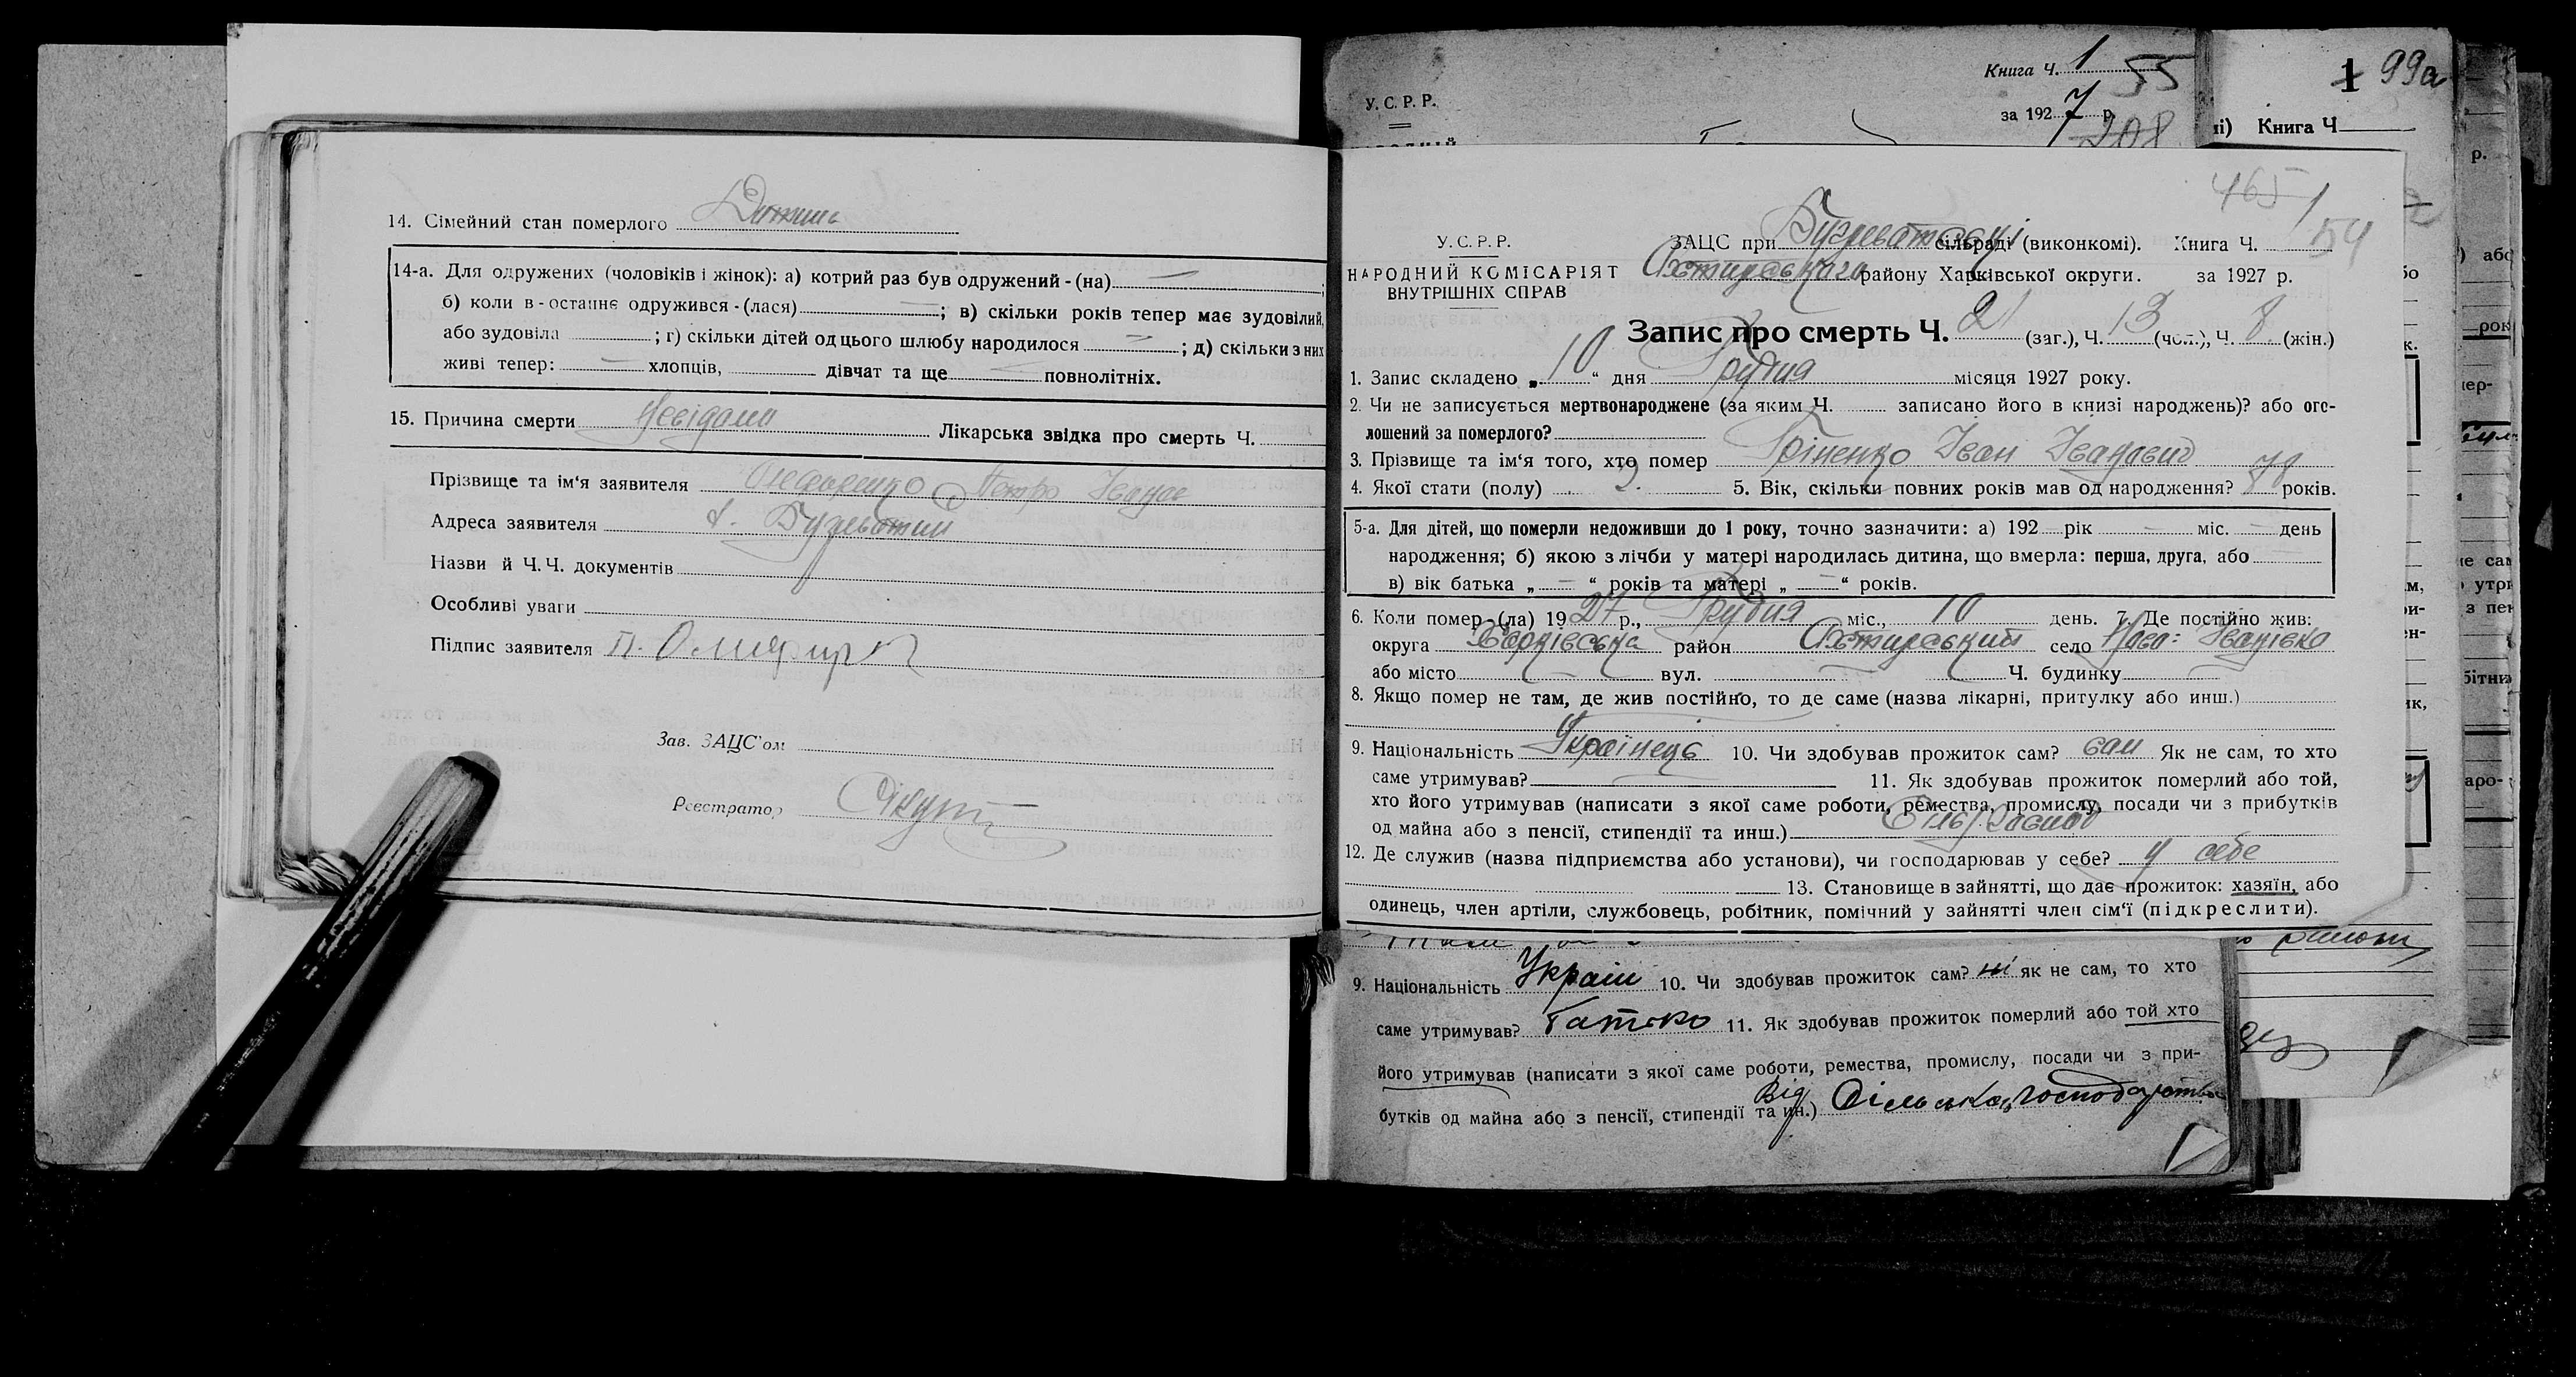 14. Сімейний стан померлого Дитина
14-а. Для одружених (чоловіків і жінок): а) котрий раз був одружений - (на) — ;
б) коли в-останнє одружився - (лася) — ; в) скільки років тепер має зудовілий,
або зудовіла ; г) скільки дітей од цього шлюбу народилося — ; д) скільки з них
живі тепер: — хлопців, дівчат та ще — повнолітніх.
15. Причина смерти Невідома Лікарська звідка про смерть Ч.
Прізвище та ім'я заявителя Петро
Адреса заявителя
Назви й Ч.Ч. документів
Особливі уваги
Підпис заявителя П.
Зав. ЗАЦС'ом
Реєстратор
Книга Ч. 1 55
У.С.Р.Р.
за 1927 р.
208
1 99а
Книга Ч
465
1
54
У.С.Р.Р. ЗАЦС при сільраді (виконкомі). Книга Ч.
НАРОДНИЙ КОМІСАРІЯТ Охтирського району Харківської округи. за 1927 р.
ВНУТРІШНІХ СПРАВ
Запис про смерть Ч. 21 (заг.), Ч. 13 (чол.), Ч. 8 (жін.)
1. Запис складено „10“ дня Грудня місяця 1927 року.
2. Чи не записується мертвонароджене (за яким Ч. записано його в книзі народжень)? або ого-
лошений за померлого?
3. Прізвище та ім'я того, хто помер Гріненко Іван Іванович
4. Якої стати (полу) 5. Вік, скільки повних років мав од народження? 78 років.
5-а. Для дітей, що померли недоживши до 1 року, точно зазначити: а) 192 рік — міс. — день
народження; б) якою з лічби у матері народилась дитина, що вмерла: перша, друга, або
в) вік батька „ — “ років та матері „ — “ років.
6. Коли помер - (ла) 1927 р., Грудня міс., 10 день. 7. Де постійно жив:
округа Харківська район Охтирський село Ново-Іванівка
або місто — вул. Ч. будинку —
8. Якщо помер не там, де жив постійно, то де саме (назва лікарні, притулку або инш.)
9. Національність Українець 10. Чи здобував прожиток сам? сам Як не сам, то хто
саме утримував? 11. Як здобував прожиток померлий або той,
хто його утримував (написати з якої саме роботи, ремества, промислу, посади чи з прибутків
од майна або з пенсії, стипендії та инш.)
12. Де служив (назва підприємства або установи), чи господарював у себе? у себе
13. Становище в зайнятті, що дає прожиток: хазяїн, або
одинець, член артіли, службовець, робітник, помічний у зайнятті член сім'ї (підкреслити).
9. Національність Україн 10. Чи здобував прожиток сам? ні як не сам, то хто
саме утримував? Батько 11. Як здобував прожиток померлий або той хто
його утримував (написати з якої саме роботи, ремества, промислу, посади чи з при-
бутків од майна або з пенсії, стипендії та ин.) Від Сільська господарства